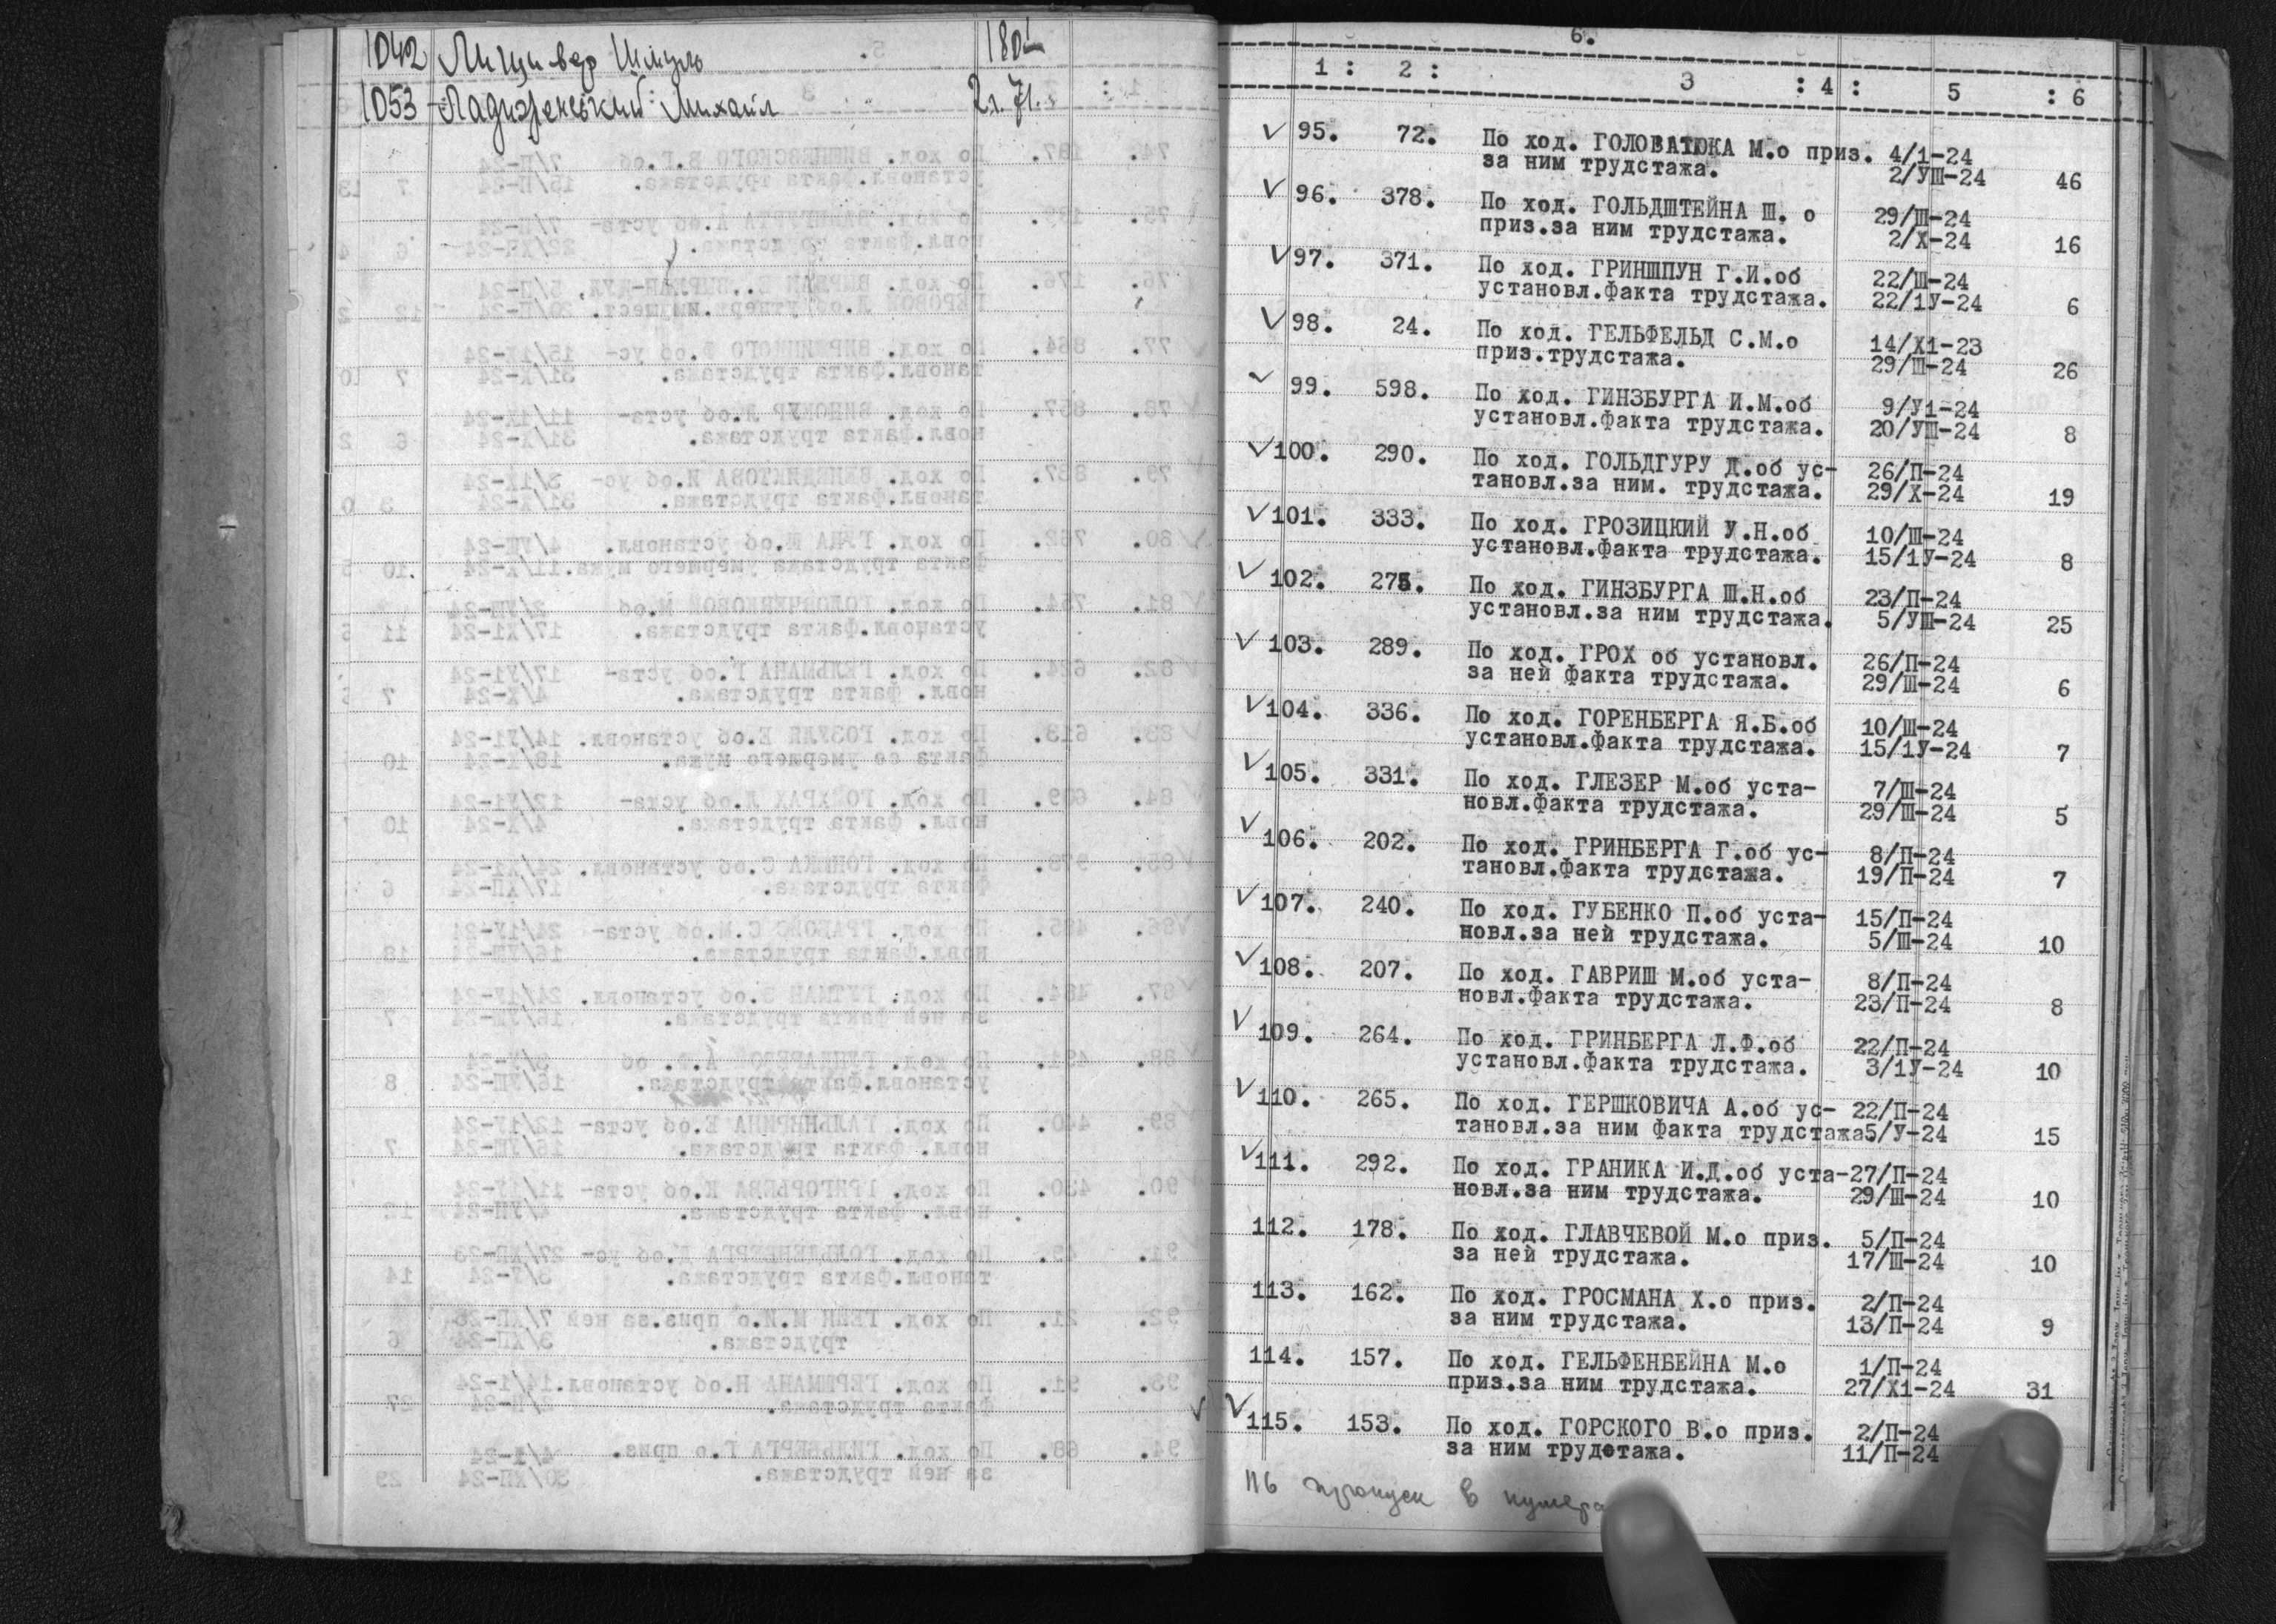 1042 Лищивер Шмуль 180
1053 Ладиженський Михайл 2л. 71.
6.
1 : 2 : 3 : 4 : 5 : 6
95. 72. По ход. ГОЛОВАТЮКА М.о приз. 4/1-24
за ним трудстажа. 2/УШ-24 46
96. 378. По ход. ГОЛЬДШТЕЙНА Ш. о 29/Ш-24
приз.за ним трудстажа. 2/Х-24 16
97. 371. По ход. ГРИНШПУН Г.И.об 22/Ш-24
установл.факта трудстажа. 22/1У-24 6
98. 24. По ход. ГЕЛЬФЕЛЬД С.М.о 14/Х1-23
приз.трудстажа. 29/Ш-24 26
99. 598. По ход. ГИНЗБУРГА И.М.об 9/У1-24
установл.факта трудстажа. 20/УШ-24 8
100. 290. По ход. ГОЛЬДГУРУ Д.об ус- 26/П-24
тановл.за ним. трудстажа. 29/Х-24 19
101. 333. По ход. ГРОЗИЦКИЙ У.Н.об 10/Ш-24
установл.факта трудстажа. 15/1У-24 8
102. 275. По ход. ГИНЗБУРГА Ш.Н.об 23/П-24
установл.за ним трудстажа. 5/УШ-24 25
103. 289. По ход. ГРОХ об установл. 26/П-24
за ней факта трудстажа. 29/Ш-24 6
104. 336. По ход. ГОРЕНБЕРГА Я.Б.об 10/Ш-24
установл.факта трудстажа. 15/1У-24 7
105. 331. По ход. ГЛЕЗЕР М.об уста- 7/Ш-24
новл.факта трудстажа. 29/Ш-24 5
106. 202. По ход. ГРИНБЕРГА Г.об ус- 8/П-24
тановл.факта трудстажа. 19/П-24 7
107. 240. По ход. ГУБЕНКО П.об уста- 15/П-24
новл.за ней трудстажа. 5/Ш-24 10
108. 207. По ход. ГАВРИШ М.об уста- 8/П-24
новл.факта трудстажа. 23/П-24 8
109. 264. По ход. ГРИНБЕРГА Л.Ф.об 22/П-24
установл.факта трудстажа. 3/1У-24 10
110. 265. По ход. ГЕРШКОВИЧА А.об ус- 22/П-24
тановл.за ним факта трудстажа5/У-24 15
111. 292. По ход. ГРАНИКА И.Д.об уста-27/П-24
новл.за ним трудстажа. 29/Ш-24 10
112. 178. По ход. ГЛАВЧЕВОЙ М.о приз. 5/П-24
за ней трудстажа. 17/Ш-24 10
113. 162. По ход. ГРОСМАНА Х.о приз. 2/П-24
за ним трудстажа. 13/П-24 9
114. 157. По ход. ГЕЛЬФЕНБЕЙНА М.о 1/П-24
приз.за ним трудстажа. 27/Х1-24 31
115. 153. По ход. ГОРСКОГО В.о приз. 2/П-24
за ним трудстажа. 11/П-24
116 пропуск в нумера